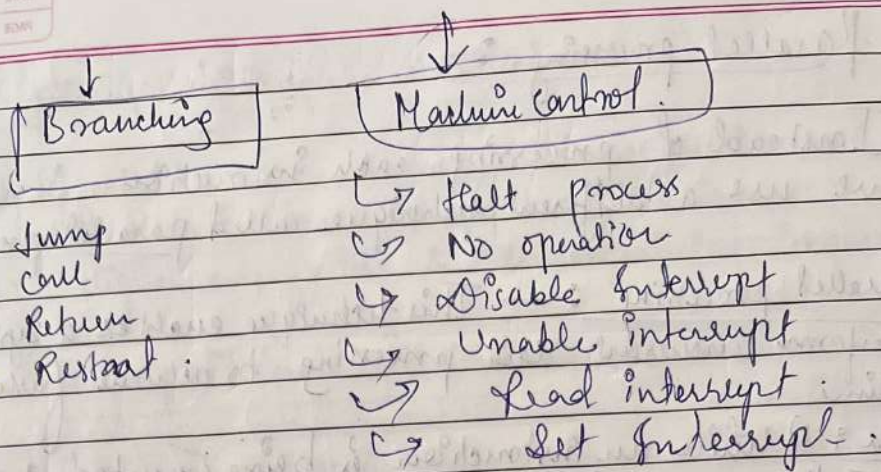 Branching
Jump
Call
Return
Restart.
Machine Control.
Halt process
No operation
Disable Interrupt
Unable interrupt
Read interrupt.
Set Interrupt.